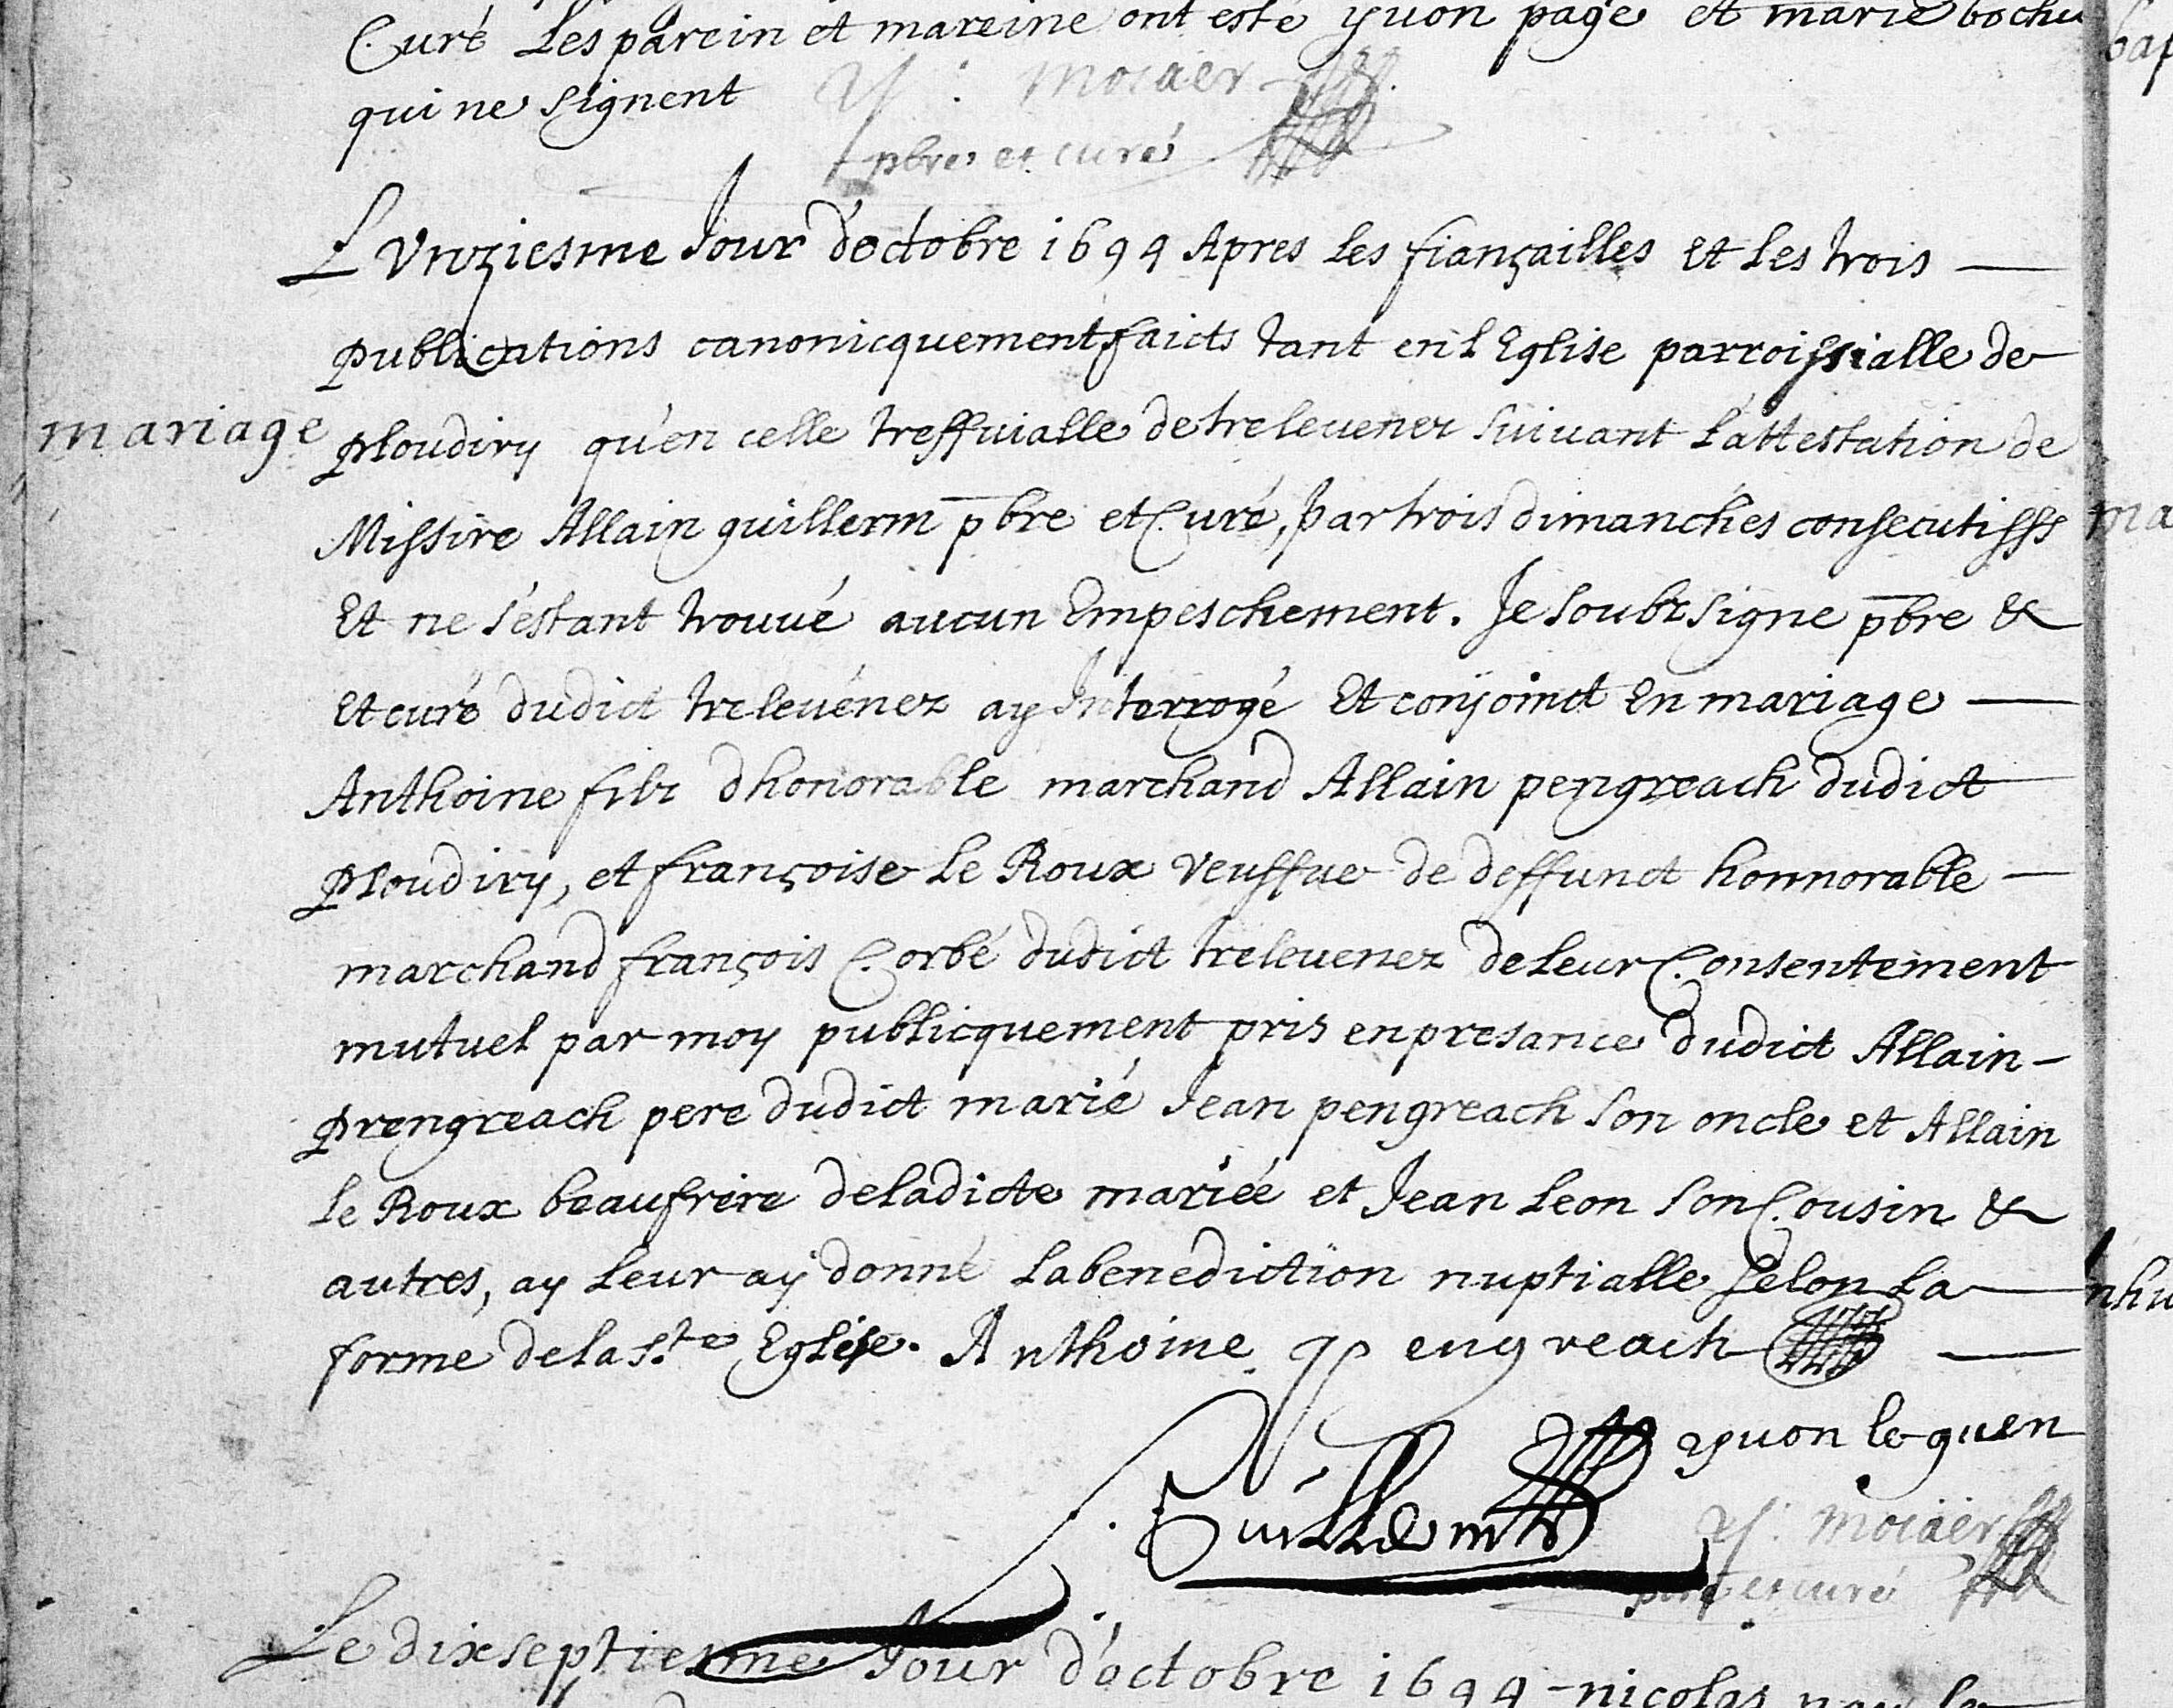 Curé Les parein et mareine ont esté yuon page et marie
qui ne signent Y : Mocaër
pbre et curé
L Vnziesme Jour d'octobre 1694 Apres Les fiançailles et Les trois
publications canonicquement faicts tant en L Eglise parroissialle de
mariage
Ploudiry qu'en celle treffuialle de treleuenez suiuant L'attestation de
Missire Allain guillerm pbre et Curé, par trois dimanches consecutiffs
Et ne s'estant trouué aucun Empeschement. Je soubzsigne pbre &
Et curé dudict treleuénez ay Interrogé Et conjoinct En mariage
Anthoine filz dhonorable marchand Allain pengreach dudict
Ploudiry, et françoise Le Roux veuffue de deffunct honnorable
marchand françois Corbé dudict treleuenez de Leur Consentement
mutuel par moy publicquement pris en presance dudict Allain
Prengreach pere dudict marié Jean pengreach son oncle et Allain
Le Roux beaufrere de ladicte mariéé et Jean Leon son Cousin &
autres, ay Leur ay donné La benediction nuptialle selon La
forme de la s.te Eglise. Anthoine pengreach
yuon le guen
Guillerm
Y : Mocaër
pbre et curé
Le dixseptiesme Jour d'octobre 1694 nicolas